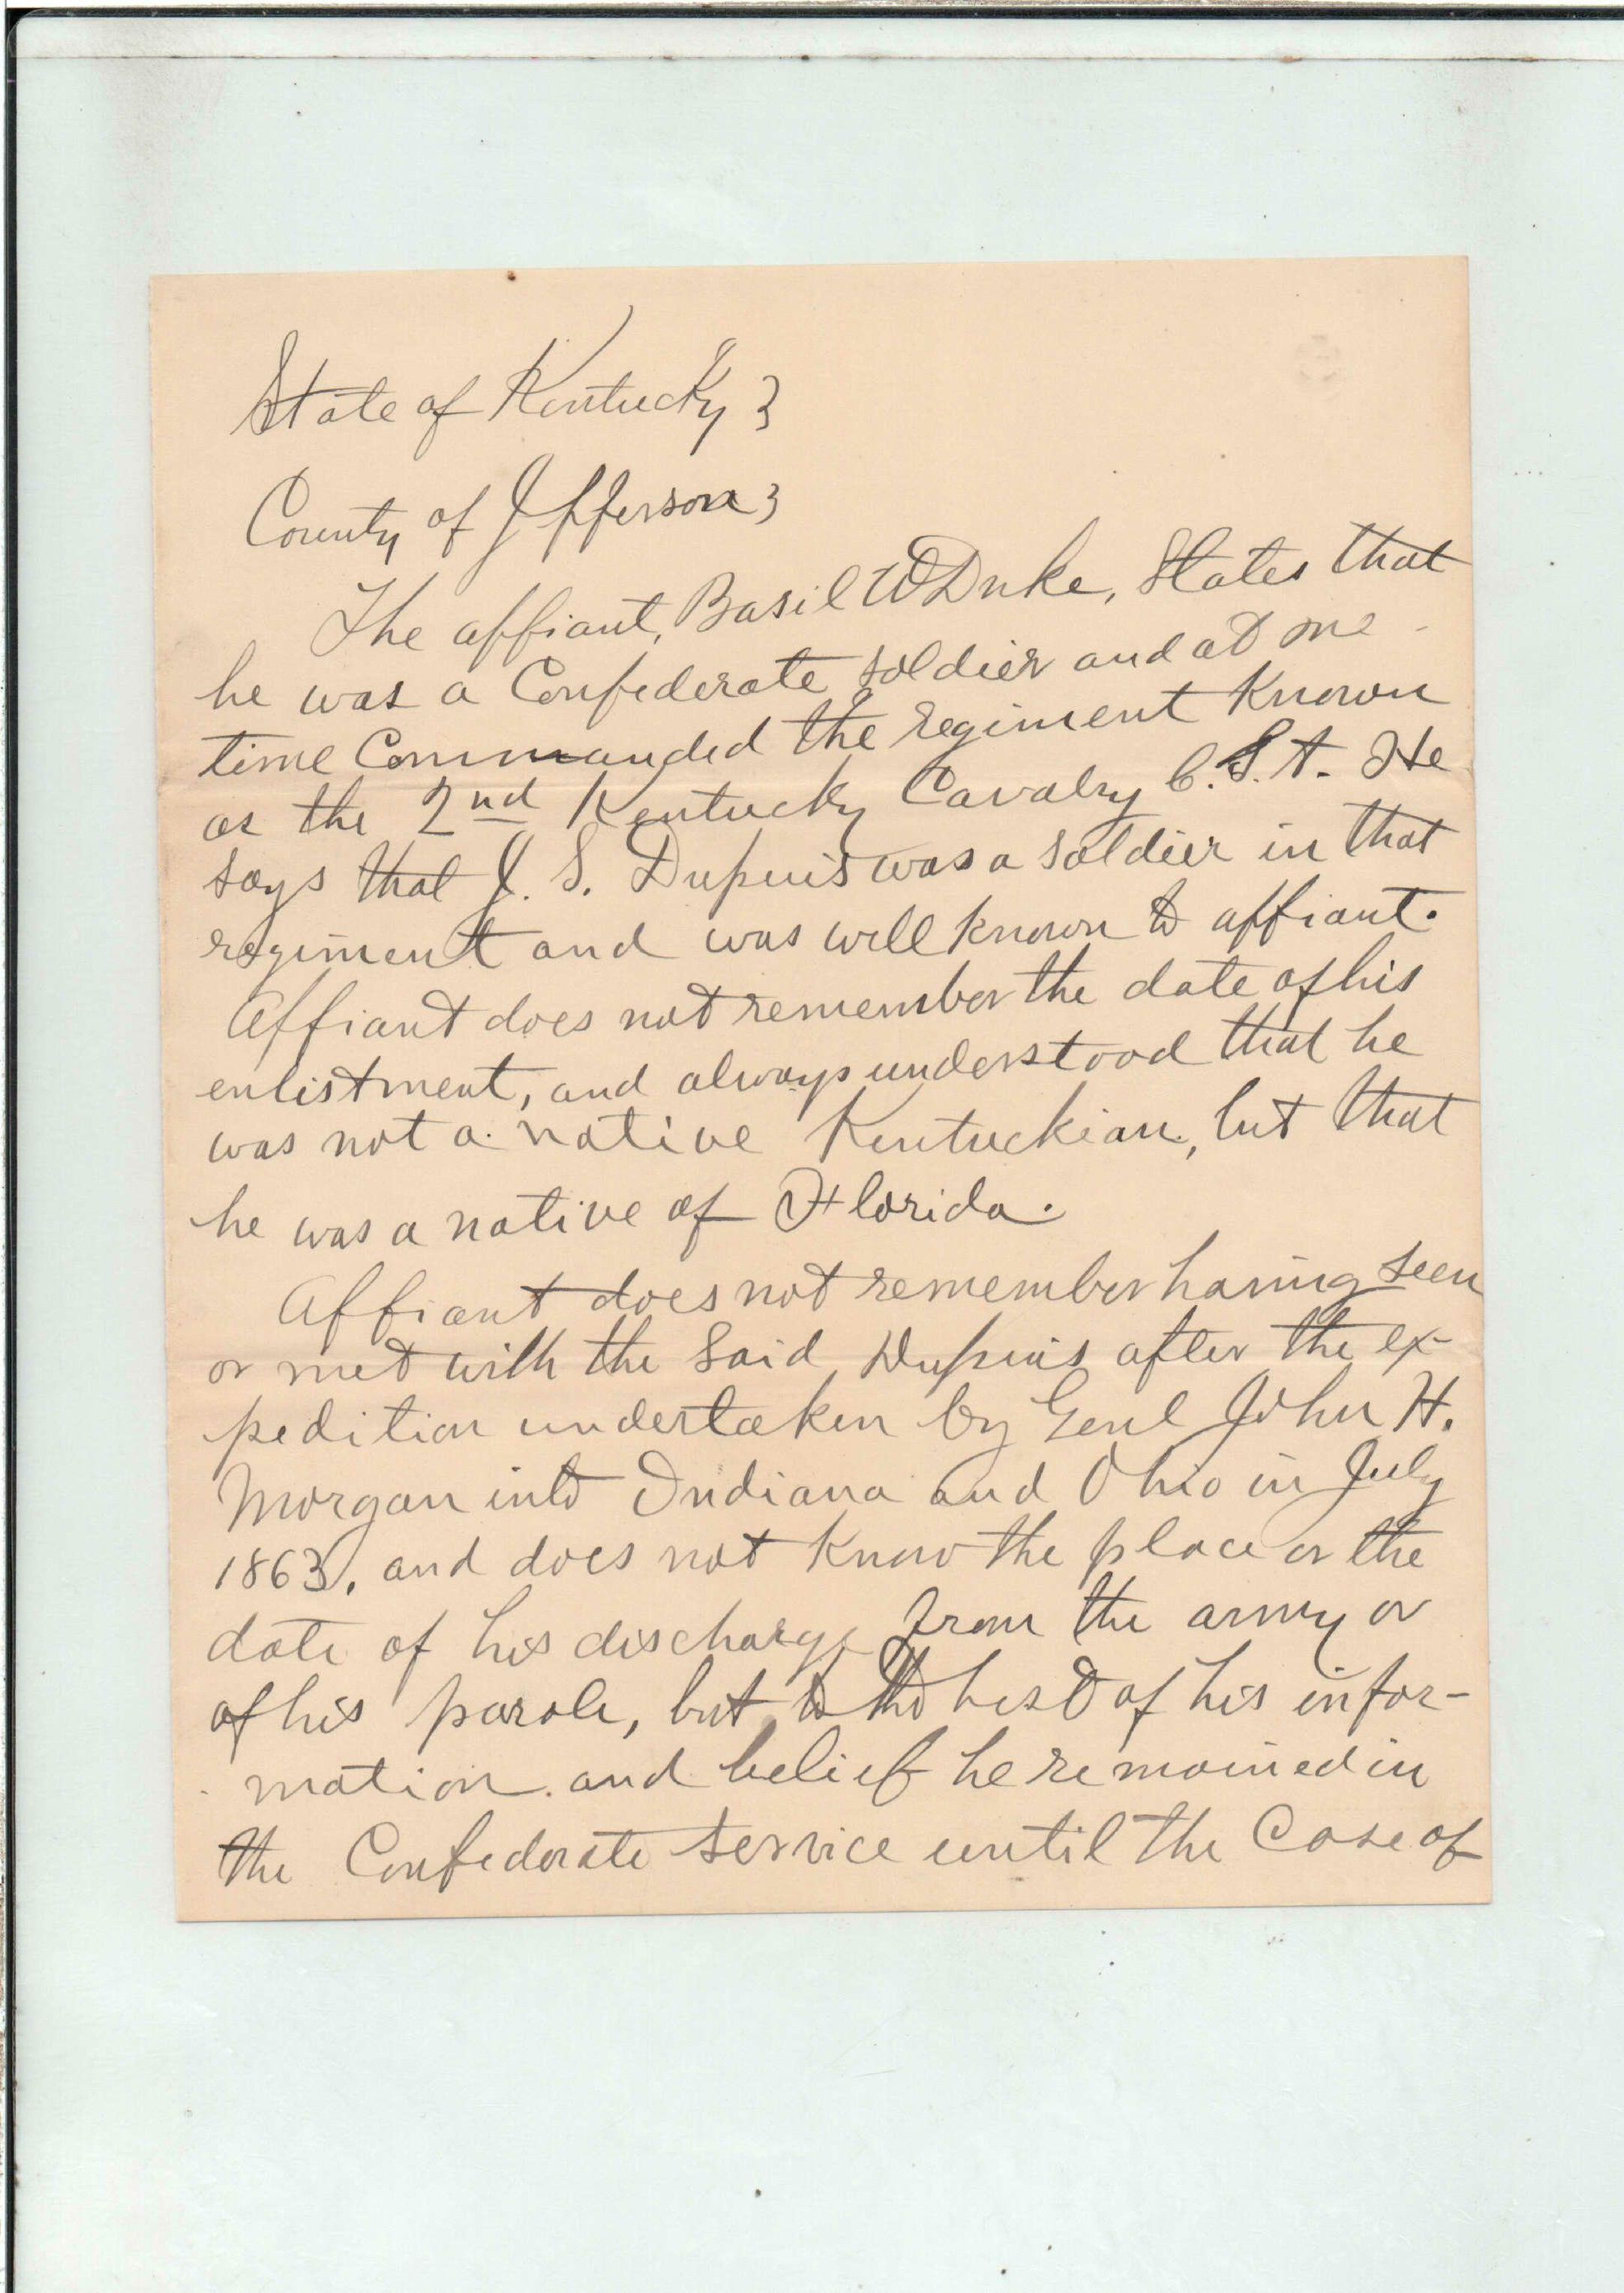 State of Kentucky }
County of Jefferson }
The affiant, Basil W Duke, States that
he was a Confederate soldier and at one
time Commanded the regiment Known
as the 2nd Kentucky Cavalry C.S.A. He
says that J. S. Dupuis was a soldier in that
regiment and was well known to affiant.
Affiant does not remember the date of his
enlistment, and always understood that he
was not a native Kentuckian, but that
he was a native of Florida.
Affiant does not remember having seen
or met with the said Dupuis after the ex-
pedition undertaken by Genl John H.
Morgan into Indiana and Ohio in July
1863, and does not Know the place or the
date of his discharge from the army or
of his parole, but to the best of his infor-
mation and belief he remained in
the Confederate service until the Close of